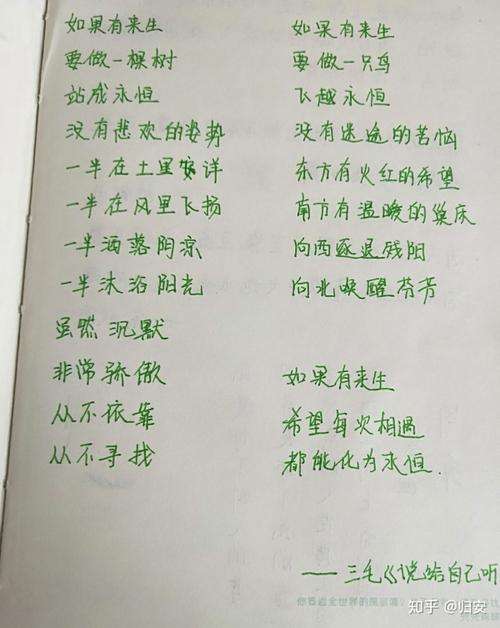 如果有来生
要做一棵树
站成永恒
没有悲欢的姿势
一半在土里安详
一半在风里飞扬
一半洒落阴凉
一半沐浴阳光
虽然沉默
非常骄傲
从不依靠
从不寻找
如果有来生
要做一只鸟
飞越永恒
没有迷途的苦恼
东方有火红的希望
南方有温暖的巢床
向西逐退残阳
向北唤醒芬芳
如果有来生
希望每次相遇
都能化为永恒.
——三毛《说给自己听
知乎 @归安